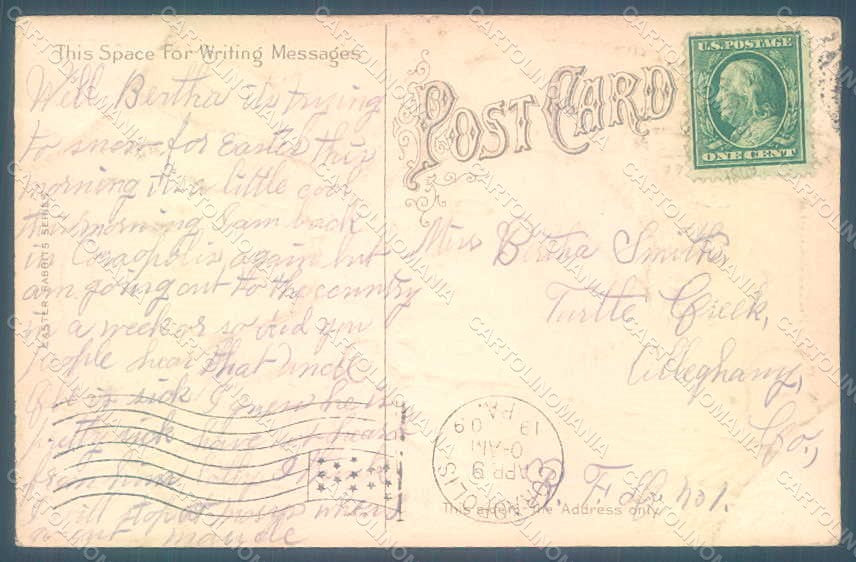 This Space For Writing Messages
Well Bertha its trying
to snow for Easter this
morning its a little cool
this morning I am back
in Coraopolis again but
am going out to the country
in a week or so did you
people hear that uncle
is sick I guess he is
pretty sick have not heard
from him
I will stop
maude
EASTER RABBITS SERIES
POST CARD
U.S. POSTAGE
ONE CENT
Miss Bertha Smith,
Turtle Creek,
Alleghany,
Co.,
R. F. D. No 1.
This side is the Address only
APR 9
0-AM
1909
PA.
CARTOLINOMANIA